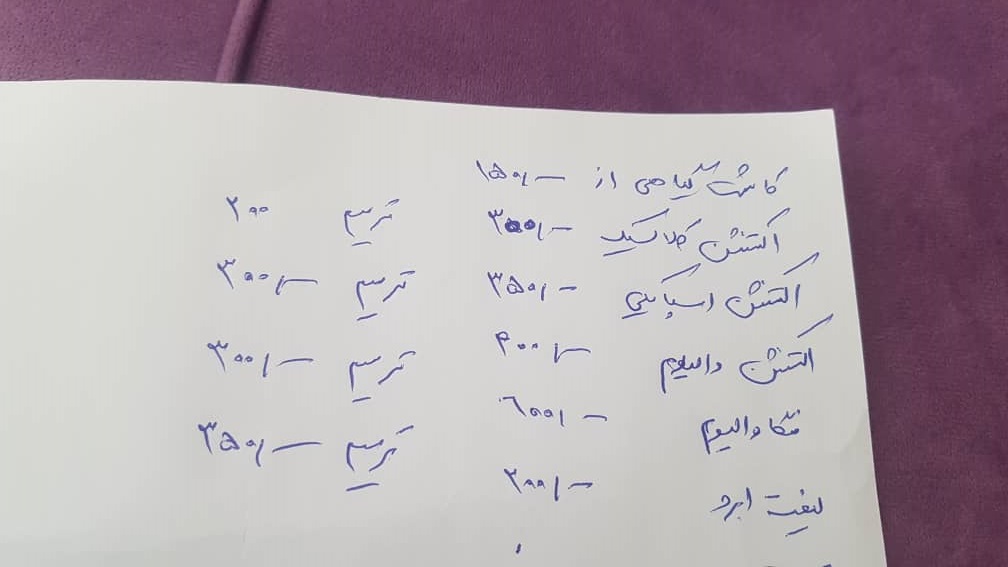 کاشت گیاهی از ۱۵۰/-
اکتنشن کلاسیک ۳۰۰/- ترمیم ۲۰۰
اکتنشن اسپایکی ۳۵۰/- ترمیم ۳۰۰/-
اکتنشن والیوم ۴۰۰/- ترمیم ۳۰۰/-
مگا والیوم ۶۰۰/- ترمیم ۳۵۰/-
لیفت ابرو ۲۰۰/-